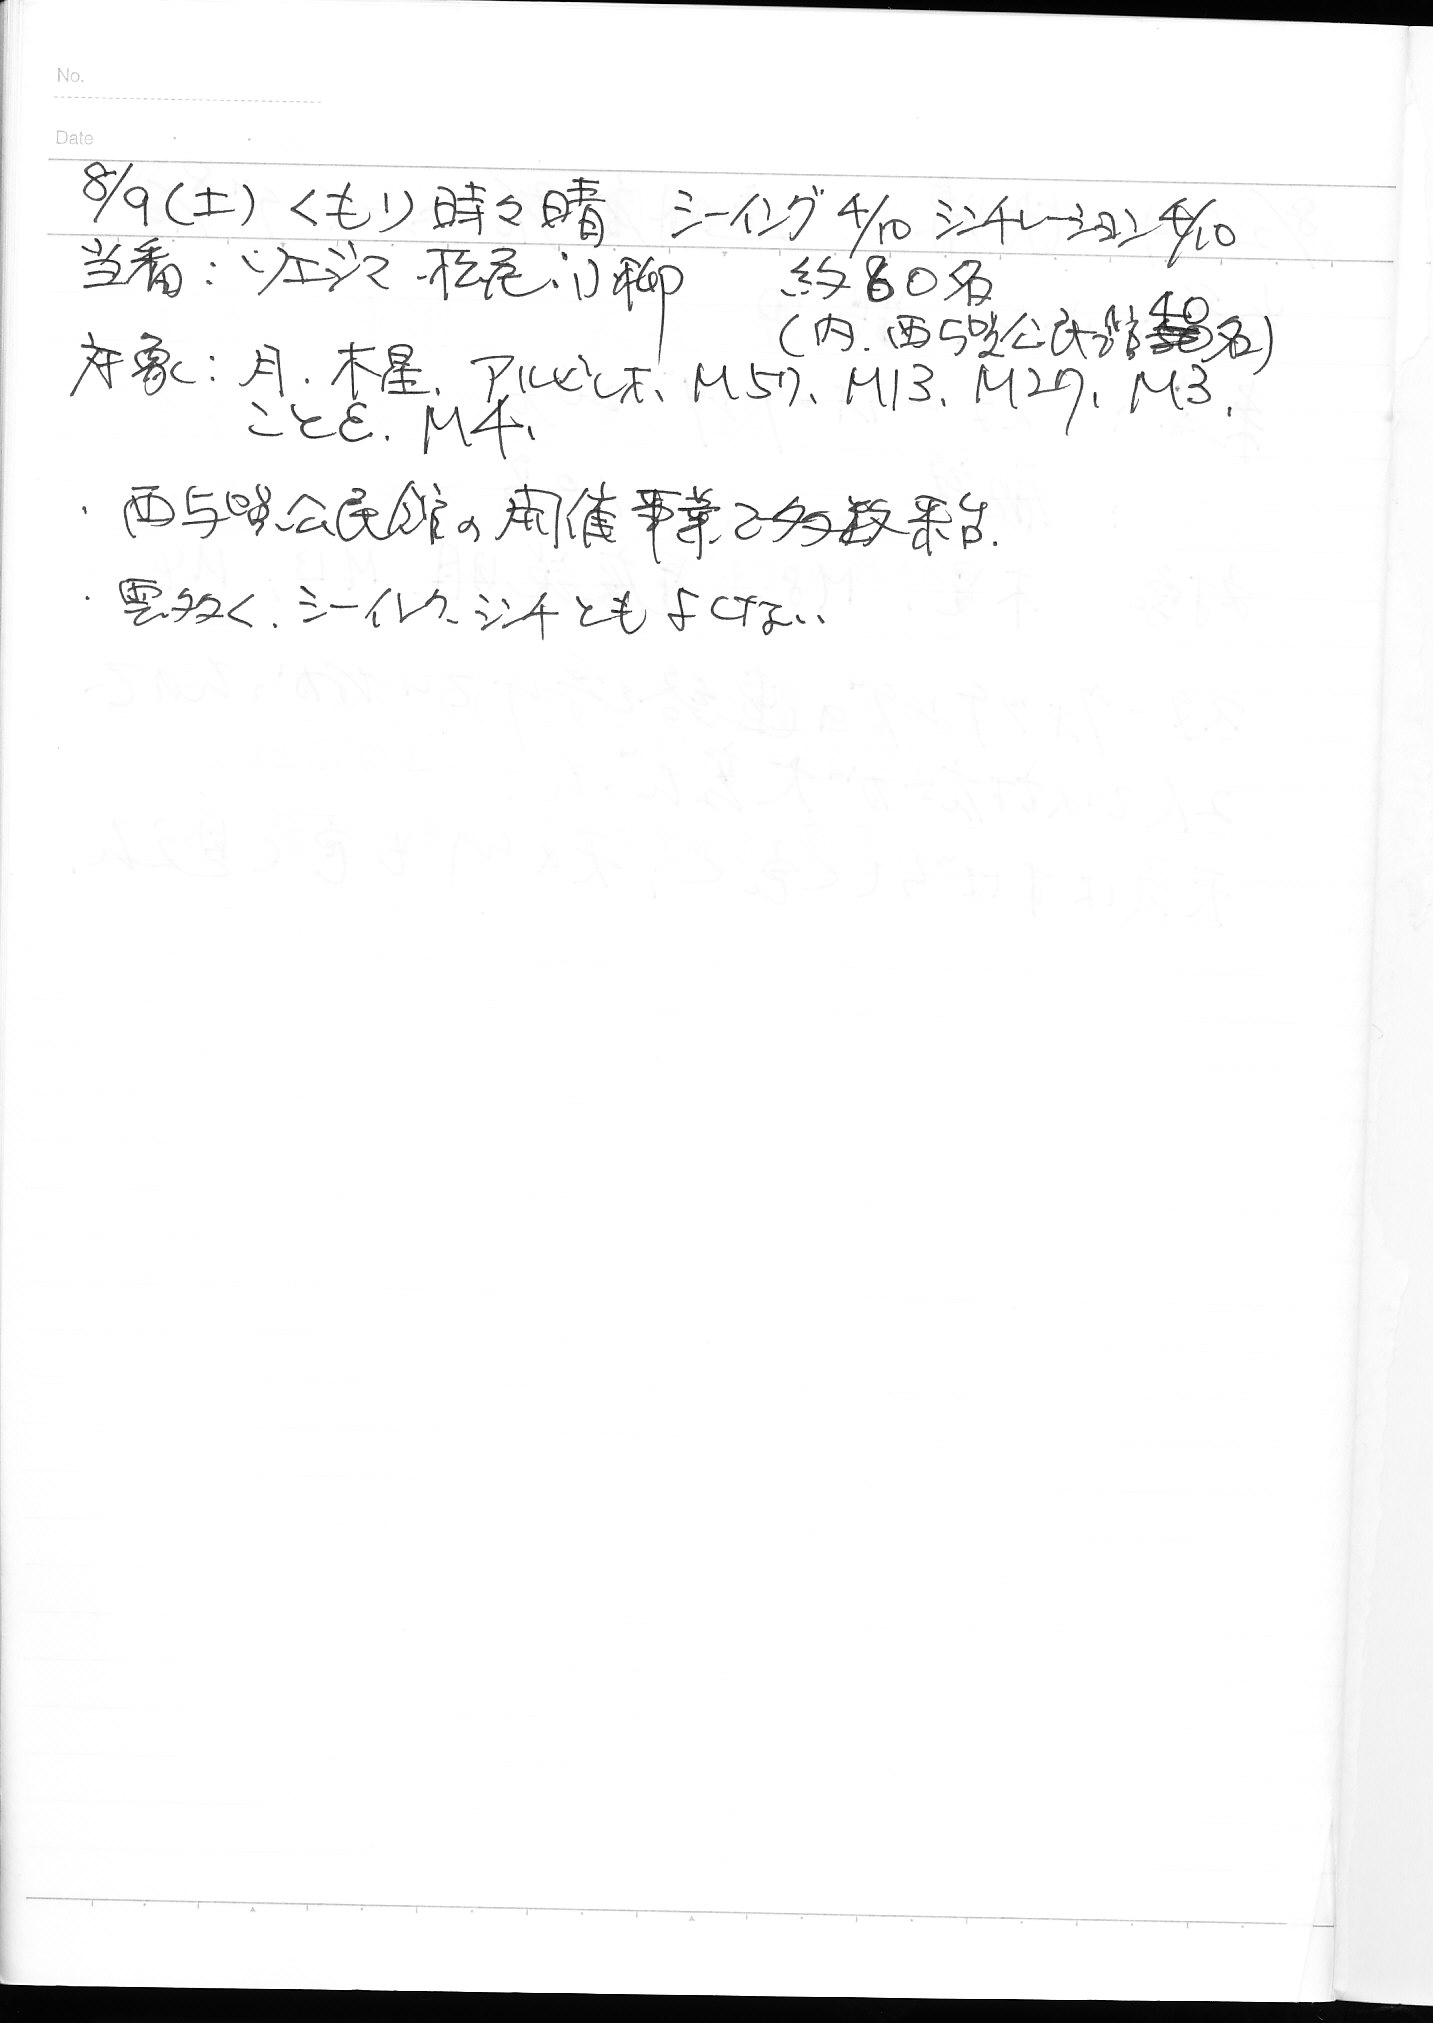 No.
Date
8/9(土) くもり時々晴 シーイング4/10 シンチレーション4/10
当番:ソエジマ・松尾・小柳 約80名
(内.西与賀公民館40名)
対象:月.木星.アルビレオ、M57、M13、M27、M3、
こと座ε.M4、
・西与賀公民館の開催事業で多数来台.
・雲多く.シーイング.シンチともよくない、